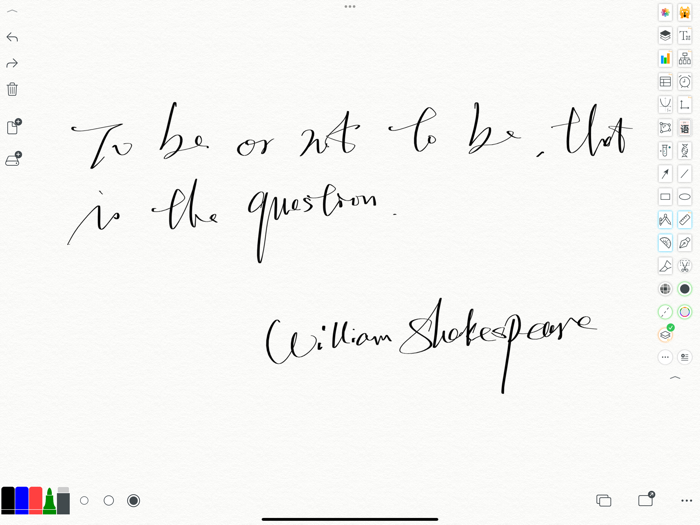 To be or not to be, that
is the question.
William Shakespeare